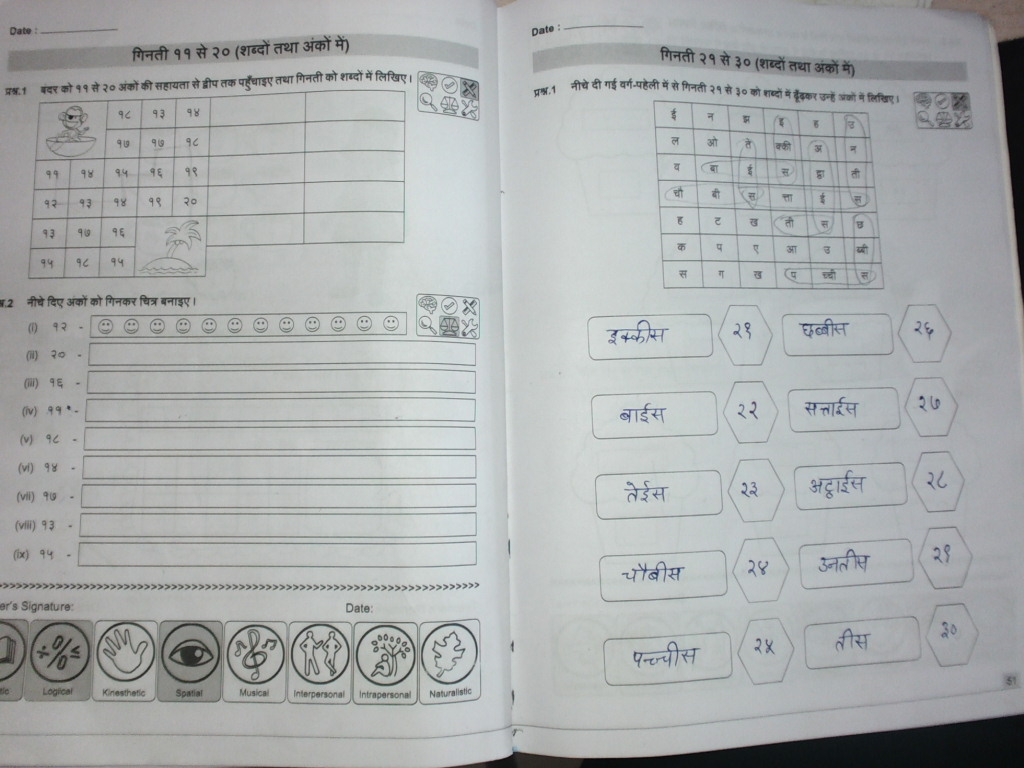 Date :
गिनती ११ से २० (शब्दों तथा अंकों में)
प्रश्न.1 बंदर को ११ से २० अंकों की सहायता से द्वीप तक पहुँचाइए तथा गिनती को शब्दों में लिखिए।
१८ १३ १४
१७ १७ १८
११ १४ १५ १६ १९
१२ १३ १४ १९ २०
१३ १७ १६
१५ १८ १५
.2 नीचे दिए अंकों को गिनकर चित्र बनाइए।
(i) १२ -
(ii) २० -
(iii) १६ -
(iv) ११ -
(v) १८ -
(vi) १४ -
(vii) १७ -
(viii) १३ -
(ix) १५ -
er's Signature: Date:
tic Logical Kinesthetic Spatial Musical Interpersonal Intrapersonal Naturalistic
Date :
गिनती २१ से ३० (शब्दों तथा अंकों में)
प्रश्न.1 नीचे दी गई वर्ग-पहेली में से गिनती २१ से ३० को शब्दों में ढूँढ़कर उन्हें अंकों में लिखिए।
ई न झ इ ह उ
ल ओ ते क्की अ न
व बा ई स ट्ठा ती
चौ बी स त्ता ई स
ह ट ख ती स छ
क प ए आ उ ब्बी
स ग ख प च्ची स
इक्कीस २१ छब्बीस २६
बाईस २२ सत्ताईस २७
तेईस २३ अट्ठाईस २८
चौबीस २४ उनतीस २९
पच्चीस २५ तीस ३०
51